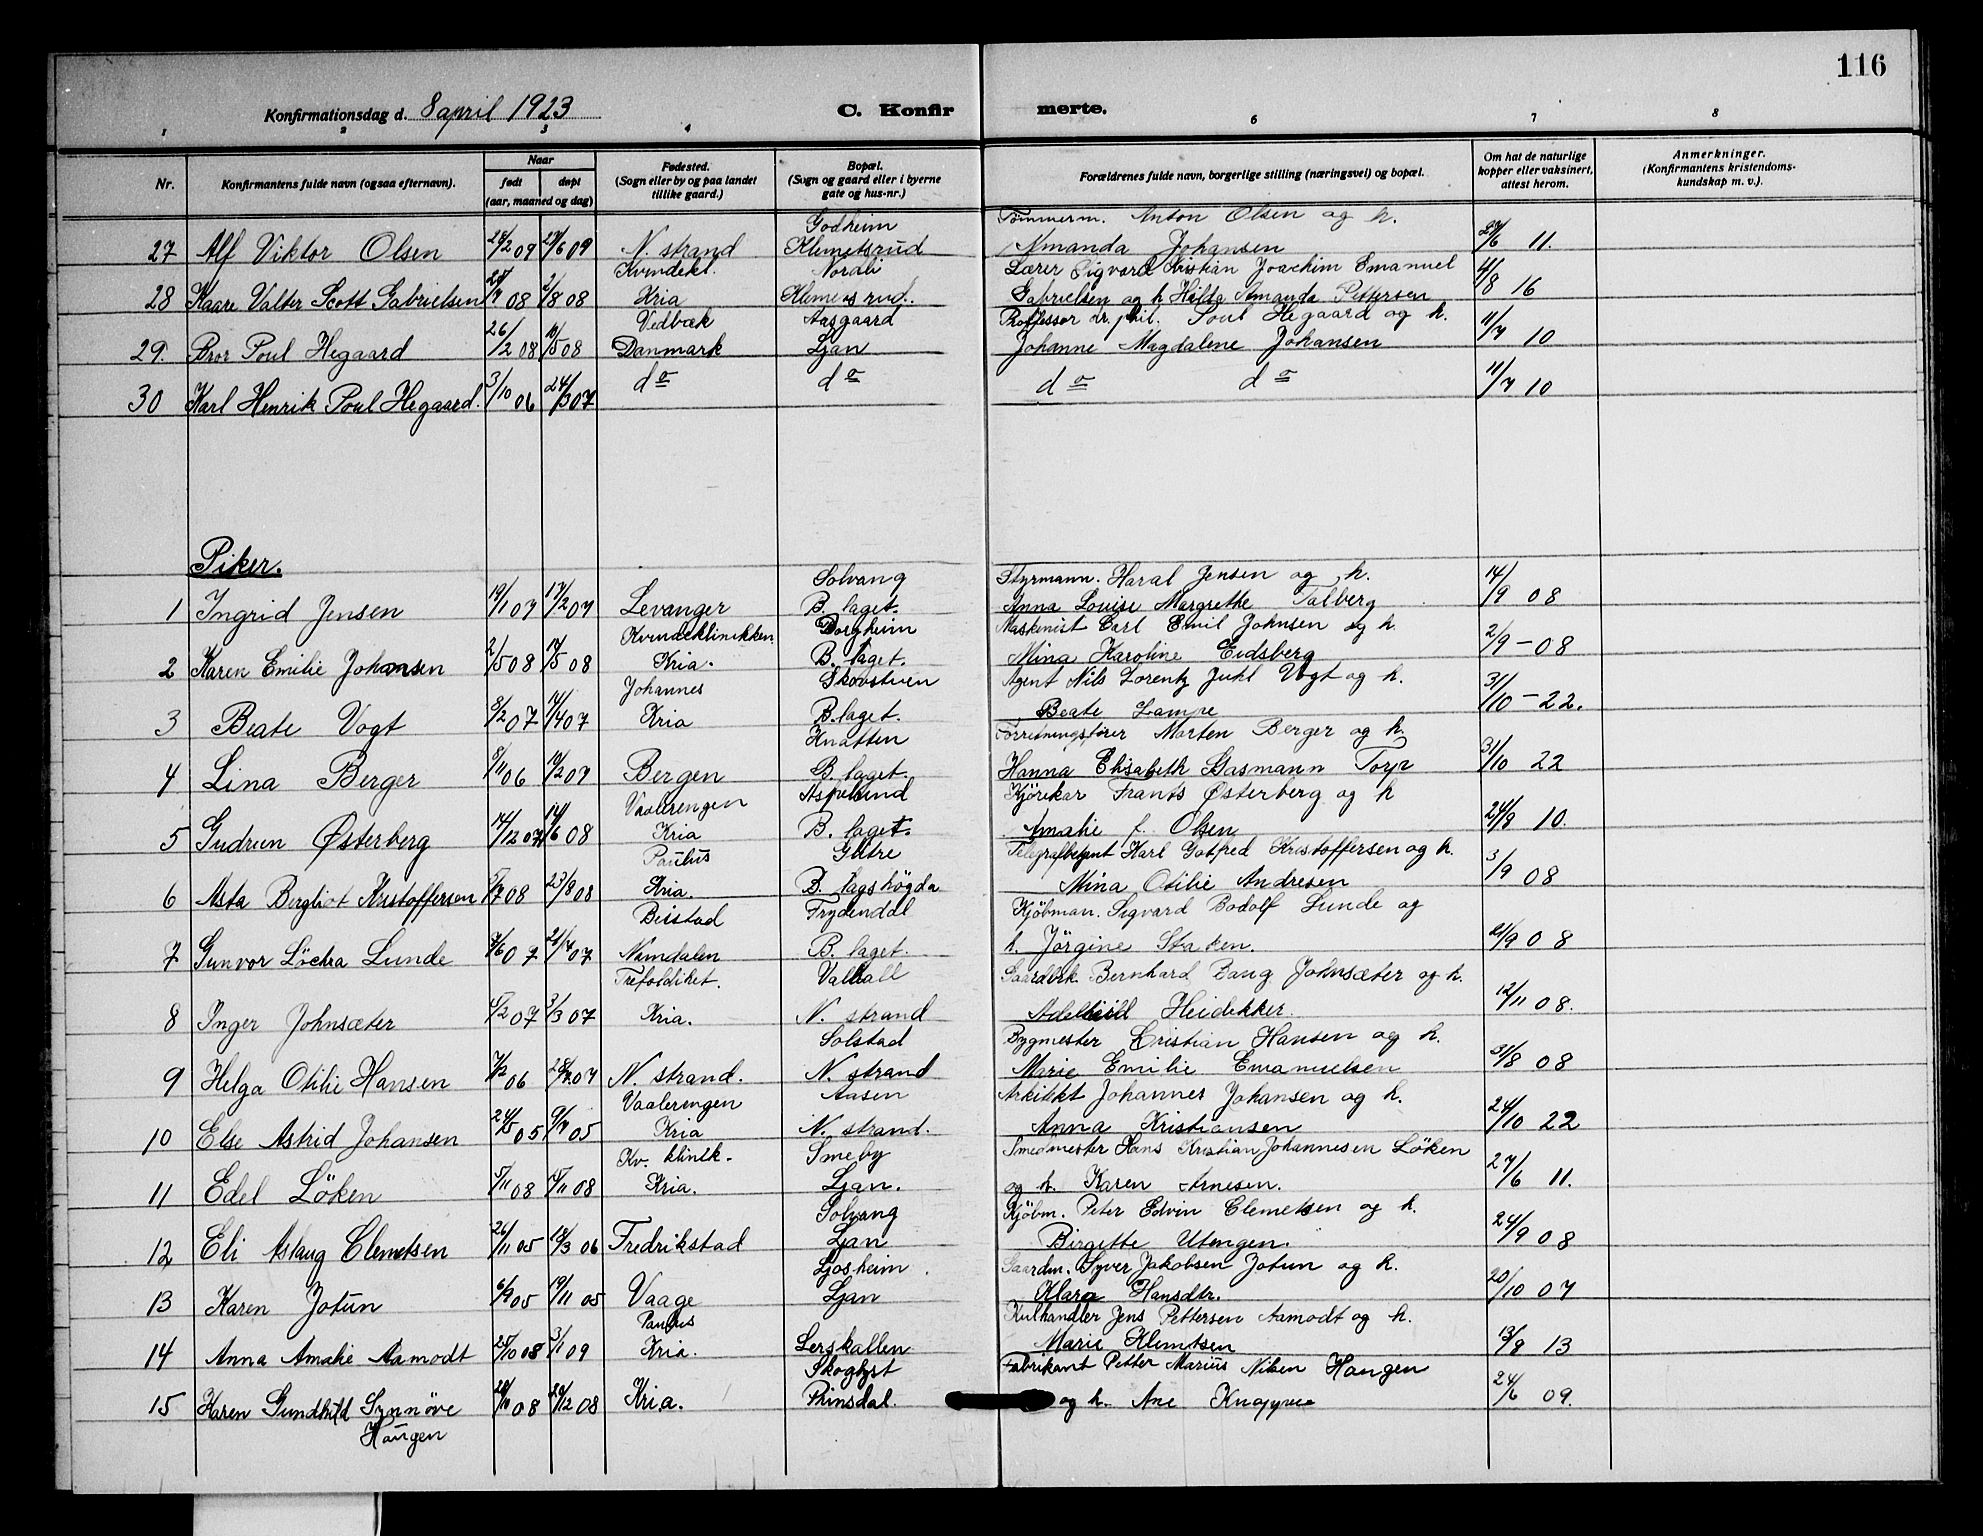 116
Konfirmationsdag d. 8 april 1923
C. Konfirmerte.
1 2 3 4 6 7 8
Nr.
Konfirmantens fulde navn (ogsaa efternavn).
Naar
født døpt
(aar, maaned og dag)
Fødested.
(Sogn eller by og paa landet
tillike gaard.)
Bopæl.
(Sogn og gaard eller i byerne
gate og hus-nr.)
Forældrenes fulde navn, borgerlige stilling (næringsvei) og bopæl.
Om hat de naturlige
kopper eller vaksinert,
attest herom.
Anmerkninger.
(Konfirmantens kristendoms-
kundskap m. v.).
Godheim Tømmerm. Anton Olsen og h.
27 Alf Viktor Olsen 09 09 N. strand Klemetsrud Amanda Johansen 11.
Kvindekl. Nordli Lærer Sigvard Kristian Joachim Emanuel
28 Kaare Valter Scott Gabrielsen 08 08 Kria Klemetsrud. Gabrielsen og h. Hilda Amanda Pettersen 4/8 16
Vedbæk Aasgaard Proffessor dr. phil. Poul Hegaard og h.
29. Bror Poul Hegaard 26/2 08 10/5 08 Danmark Ljan Johanne Magdalene Johansen 11/7 10
30 Karl Henrik Poul Hegaard. 3/10 06 24/3 07 do do do do 11/7 10
Piker.
Solvang Styrmann. Haral Jensen og h.
1 Ingrid Jensen 19/1 07 17/2 07 Levanger B. laget. Anna Louise Margrethe Talberg 14/9 08
Kvindeklinikken Borgheim Maskinist Carl Emil Johnsen og h.
2 Karen Emilie Johansen 2/5 08 08 Kria. B. laget. Mina Karoline Eidsberg 2/9 - 08
Johannes Skovstuen Agent Nils Lorentz Juhl Vogt og h.
3 Beate Vogt 8/2 07 07 Kria B. laget. Beate Lampe 31/10 - 22.
Knatten Forretningsfører Morten Berger og h.
4 Lina Berger 8/11 06 07 Bergen B. laget. Hanna Elisabeth Gasmann Torp 31/10 22
Vaalerengen Aspelund Kjörekar Frants Østerberg og h
5 Gudrun Østerberg 14/12 07 14/6 08 Kria B. laget. Amalie f. Olsen 10.
Paulus Gutre Telegrafbetjent Karl Gotfred Kristoffersen og h.
6 Asta Bergliot Kristoffersen 08 23/8 08 Kria. B. lagshögda Mina Otilie Andresen 3/9 08
Beistad Frydendal Kjöbman. Sigvard Bodolf Lunde og
7 Gunvor Löchra Lunde 07 07 Namdalen B. laget. h. Jörgine Staken. 08
Trefoldihet. Valhall Gaardbrk. Bernhard Bang Johnsæter og h.
8 Inger Johnsæter 07 3/3 07 Kria. N. strand Adelheid Heidekker. 12/11 08.
Solstad Bygmester Cristian Hansen og h.
9 Helga Otilie Hansen 06 07 N. strand. N. strand Marie Emilie Emanuelsen 31/8 08
Vaalerengen Aasen Arkitekt Johannes Johansen og h.
10 Else Astrid Johansen 05 05 Kria N. strand. Anna Kristiansen 24/10 22
Kv. klinik. Smeby Smedmester Hans Kristian Johannesen Löken
11 Edel Löken 08 08 Kria. Ljan. og h. Karen Arnesen. 27/6 11.
Solvang Kjöbm. Peter Edvin Clemetsen og h.
12 Eli Aslaug Clemetsen 26/11 05 06 Fredrikstad Ljan Birgitte Utengen. 24/9 08
Ljosheim. Gaardm. Syver Jakobsen Jotun og h.
13 Karen Jotun 05 19/11 05 Vaage Ljan Klara Hansdtr. 20/10 07
Paulus Kulhandler Jens Pettersen Aamodt og h.
14 Anna Amalie Aamodt 08 3/1 09 Kria. Lerskallen Marie Klemtsen 13/8 13
Skoglyst Fabrikant Petter Marius Nilsen Haugen
15 Karen Gundhild Synnöve 08 08 Kria. Prinsdal. og h. Ane 24/6 09.
Haugen